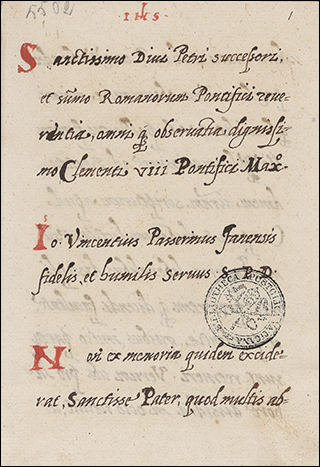 5502
IHS
1
Sanctissimo Diui Petri successori,
et sũmo Romanorum Pontifici reue-
rentia, omni q̃ obseruãtia dignissi-
mo Clementi VIII Pontifici Maxº.
Io. Vincentius Passerinus Fanensis
fidelis, et humilis seruus S. P. D.
BIBLIOTHECA APOSTOLICA VATICANA
Non ex memoria quidem excide-
rat, Sanctisse Pater, quod multis ab-